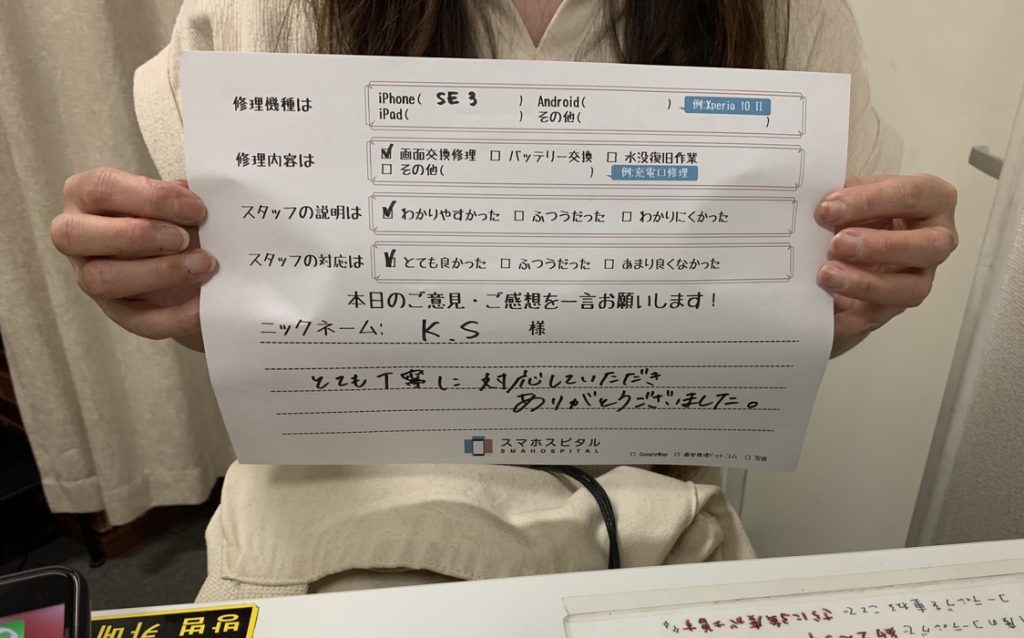 修理機種は
iPhone( SE 3 ) Android( ) 例:Xperia 10 II
iPad( ) その他( )
修理内容は
☑ 画面交換修理 □ バッテリー交換 □ 水没復旧作業
□ その他( ) 例:充電口修理
スタッフの説明は ☑ わかりやすかった □ ふつうだった □ わかりにくかった
スタッフの対応は ☑ とても良かった □ ふつうだった □ あまり良くなかった
本日のご意見・ご感想を一言お願いします！
ニックネーム: K.S 様
とても丁寧に対応していただき
ありがとうございました。
スマホスピタル
SMAHOSPITAL
□ GoogleMap □ 最安修理ドットコム □ 写真
방범
카메